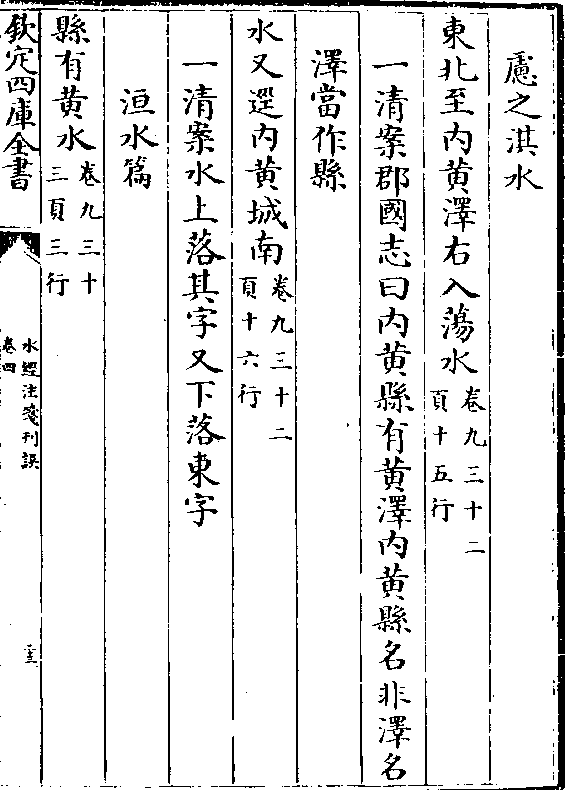 慮之淇水
東北至内黄澤右入蕩水卷九三十二頁十五行
一清案郡國志曰内黄縣有黄澤内黄縣名非澤名
澤當作縣
水又逕内黄城南卷九三十二頁十六行
一清案水上落其字又下落東字
洹水篇
縣有黄水卷九三十三頁三行
欽定四庫全書
水經注箋刊誤
卷四
二十三